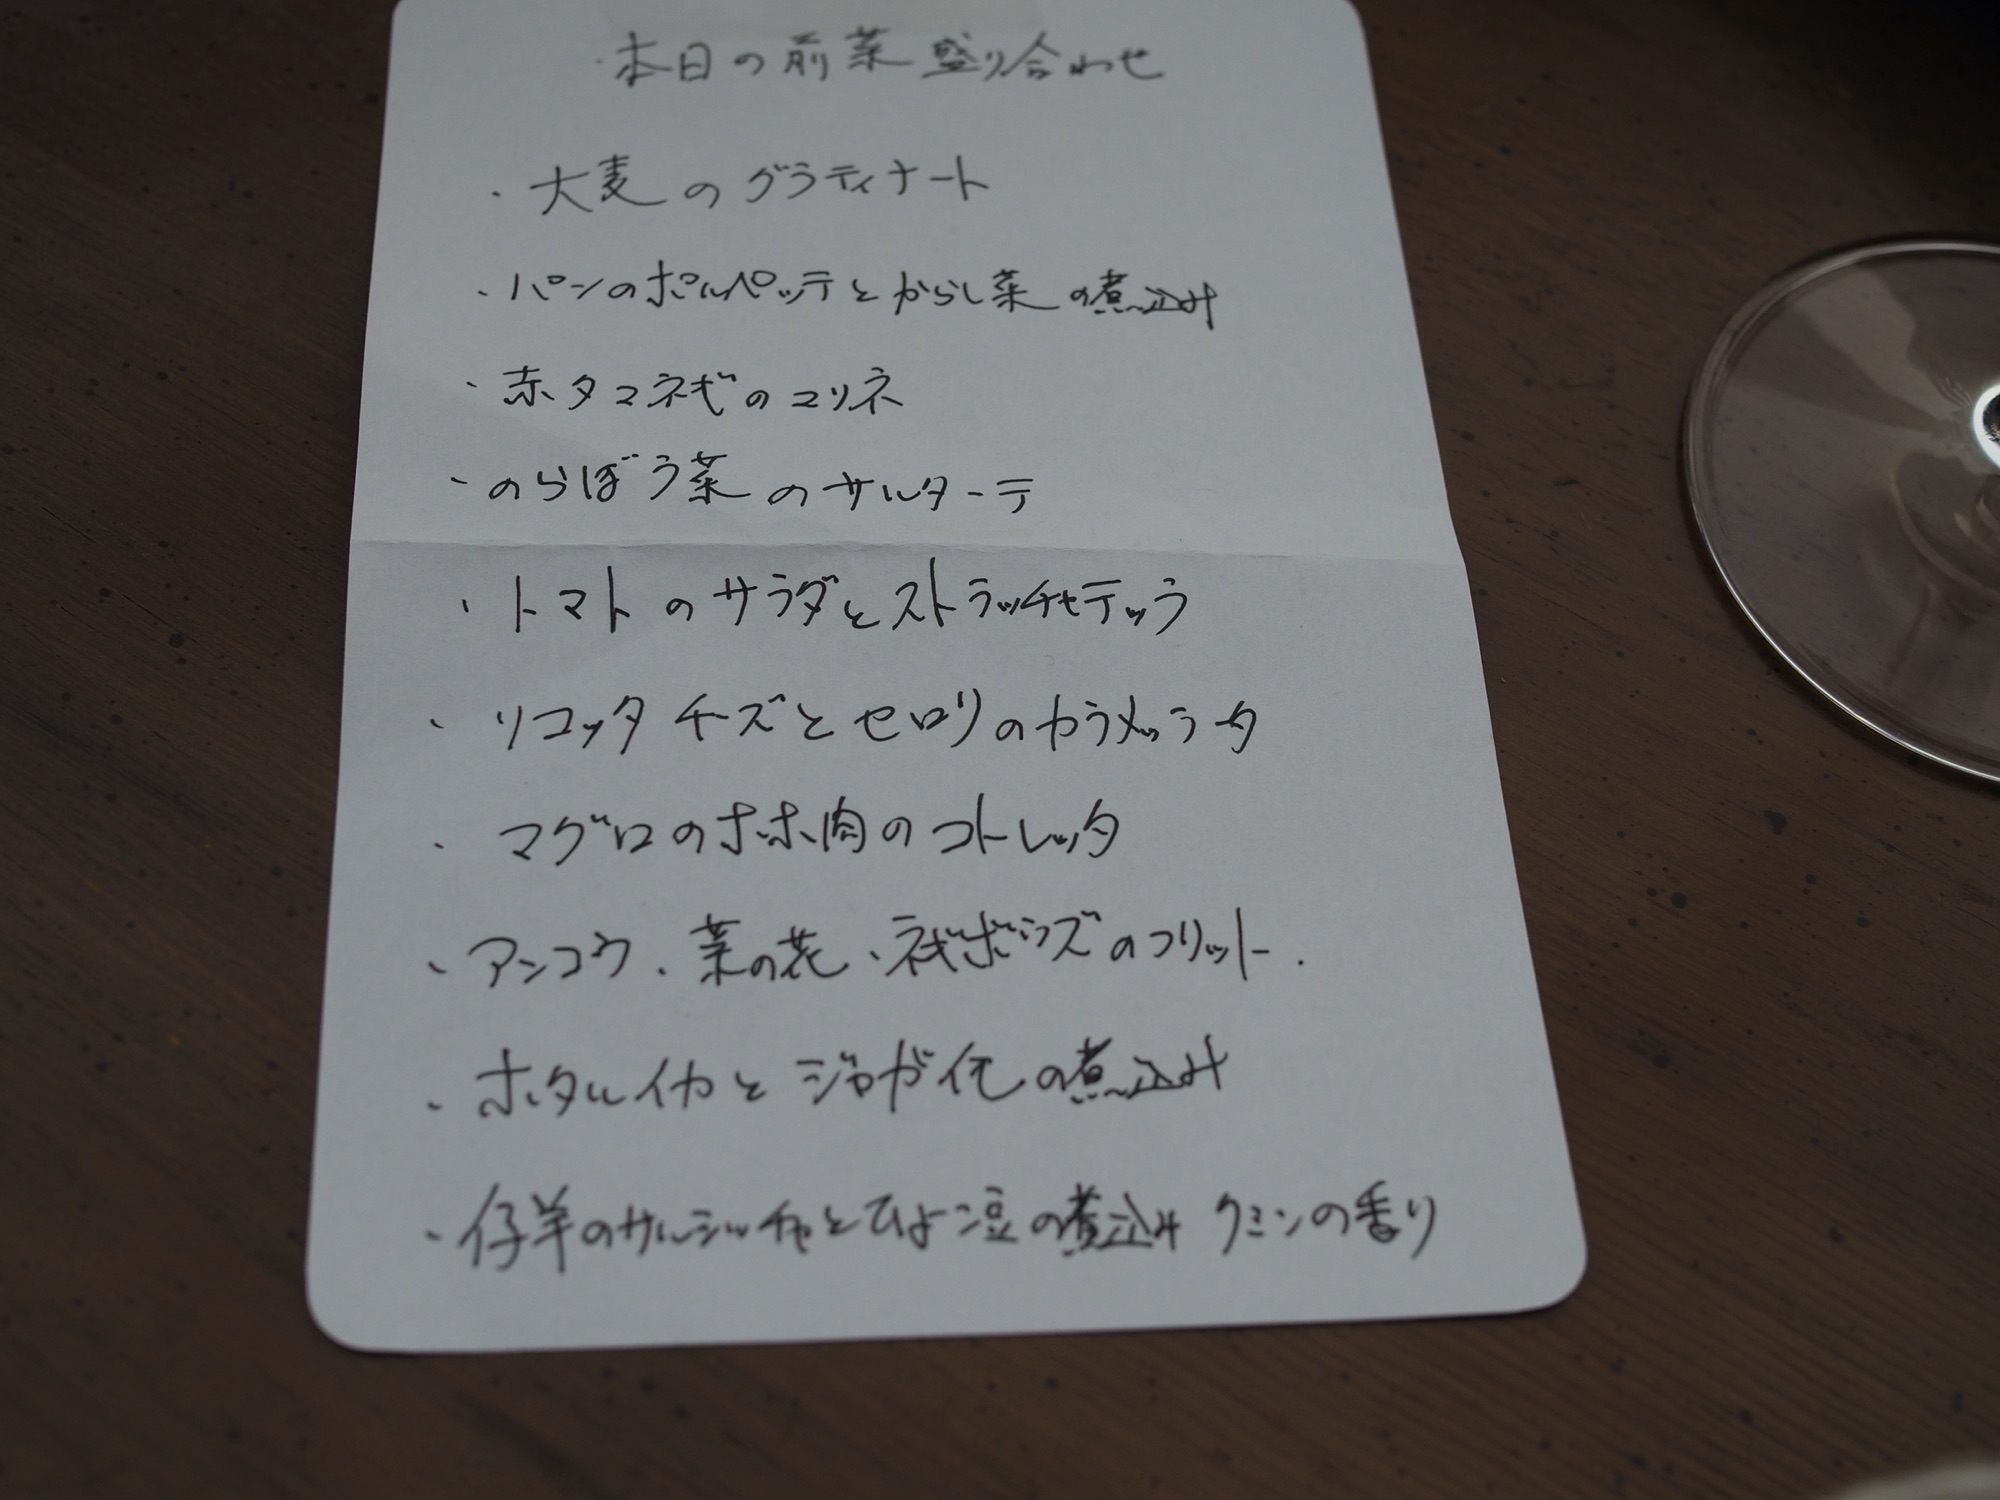 本日の前菜盛り合わせ
・大麦のグラティナート
・パンのポルペッテとからし菜の煮込み
・赤タマネギのコリネ
・のらぼう菜のサルターテ
・トマトのサラダとストラッチャテッラ
・リコッタチーズとセロリのカラメッラタ
・マグロのホホ肉のコトレッタ
・アンコウ、菜の花、ネギボウズのフリット.
・ホタルイカとジャガイモの煮込み
・仔羊のサルシッチャとひよこ豆の煮込み クミンの香り